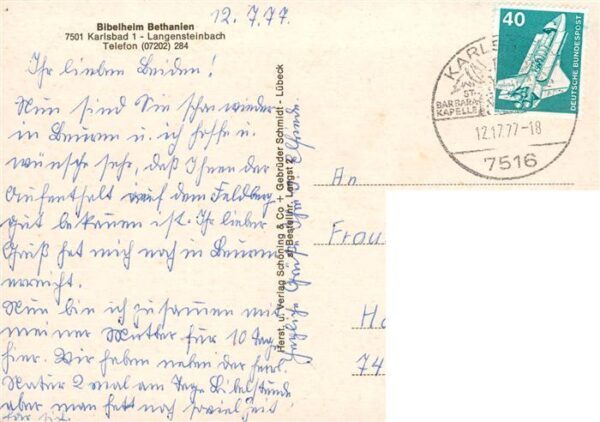 Bibelheim Bethanien
7501 Karlsbad 1 - Langensteinbach
Telefon (07202) 284
12.7.77.
Ihr lieben Beiden!
Nun sind Sie schon wieder
in Beuren u. ich hoffe u.
wünsche sehr, daß Ihnen der
Aufenthalt auf dem Feldberg
gut bekommen ist. Ihr lieber
Gruß hat mich noch in Beuren
erreicht.
Nun bin ich zusammen mit
meiner Mutter für 10 Tage
hier. Wir haben neben der herrl.
Natur 2 mal am Tage Bibelstunde
aber man hat noch soviel Zeit
für sich.
Herzliche Grüße Ihre
Herst. u. Verlag Schöning & Co + Gebrüder Schmidt - Lübeck
Bestellnr. Langst 2
40
DEUTSCHE BUNDESPOST
KARLS
ST.
BARBARA
KAPELLE
12.-7.77-18
7516
An
Frau
74